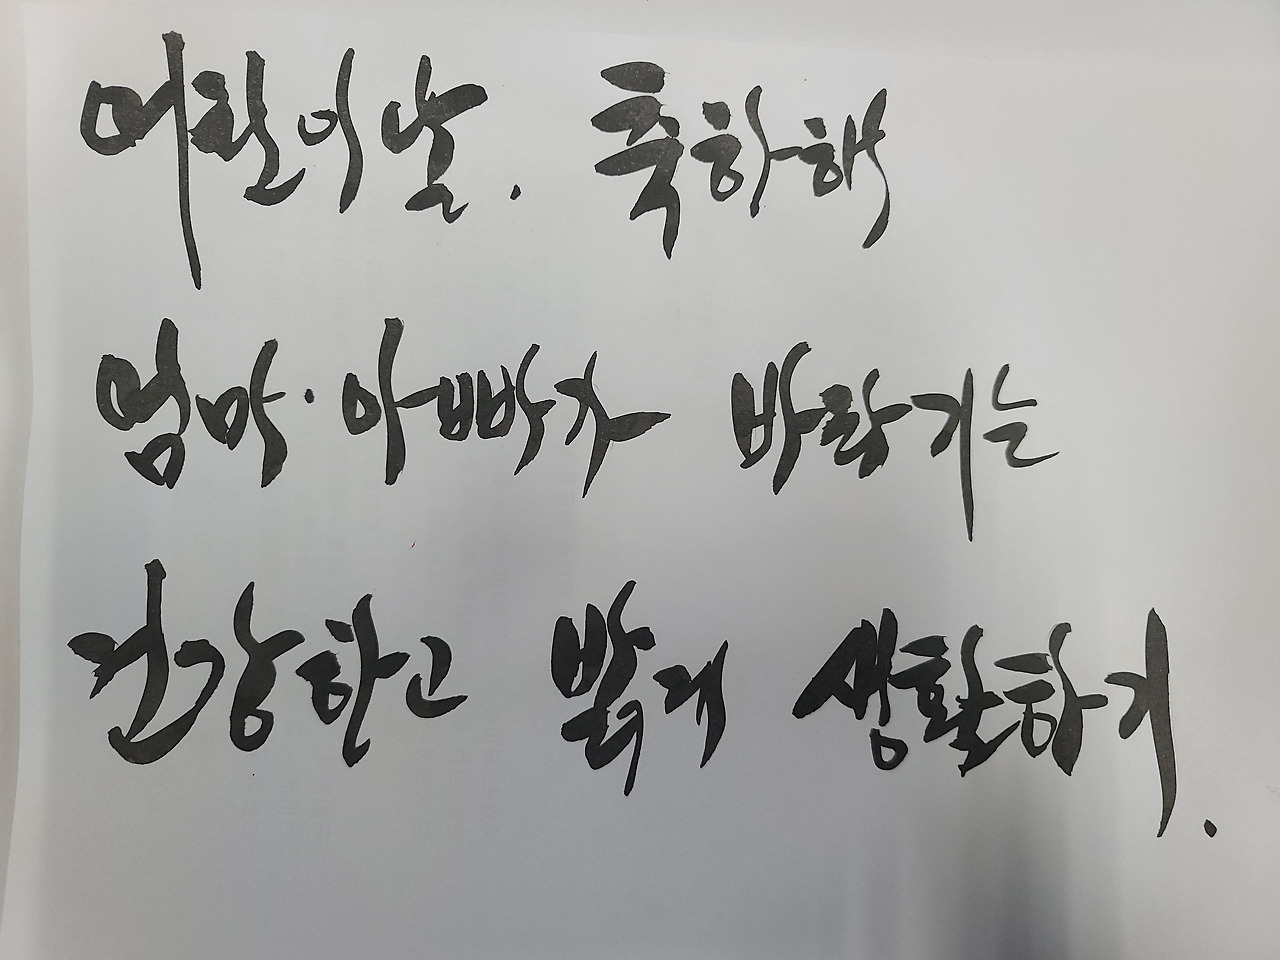 어린이날. 축하해
엄마·아빠가 바라기는
건강하고 밝게 생활하기.